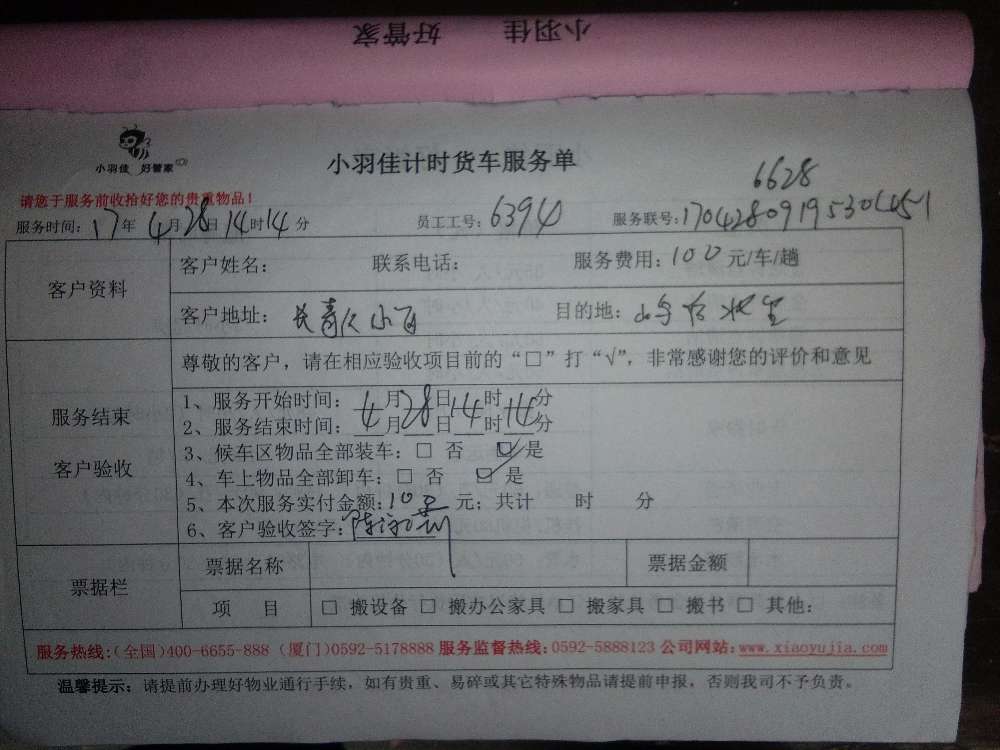 小羽佳 好管家
小羽佳 好管家
小羽佳计时货车服务单
请您于服务前收拾好您的贵重物品！
6628
服务时间：17年4月28日14时14分 员工工号：6394 服务联号：
客户资料
客户姓名： 联系电话： 服务费用：100元/车/趟
客户地址：长青 小 目的地：
尊敬的客户，请在相应验收项目前的“□”打“√”，非常感谢您的评价和意见
服务结束
客户验收
1、服务开始时间：4月28日14时14分
2、服务结束时间：　月　日　时　分
3、候车区物品全部装车：□ 否 ☑ 是
4、车上物品全部卸车：□ 否 ☑ 是
5、本次服务实付金额：100元；共计 时 分
6、客户验收签字：陈
票据栏
票据名称 票据金额
项 目 □ 搬设备 □ 搬办公家具 □ 搬家具 □ 搬书 □ 其他：
服务热线：(全国)400-6655-888 (厦门)0592-5178888 服务监督热线：0592-5888123 公司网站：www.xiaoyujia.com
温馨提示：请提前办理好物业通行手续，如有贵重、易碎或其它特殊物品请提前申报，否则我司不予负责。